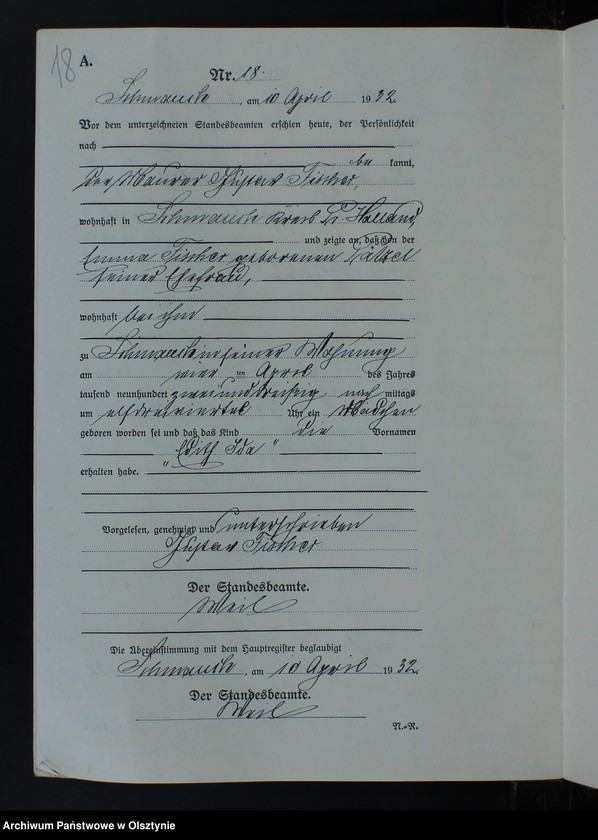 18
A.
Nr. 18.
Schmauch, am 10 April 1932.
Vor dem unterzeichneten Standesbeamten erschien heute, der Persönlichkeit
nach
be kannt,
der Maurer Gustav Fischer,
wohnhaft in Schmauch Kreis Pr. Holland,
und zeigte an, daß von der
Emma Fischer geborenen
seiner Ehefrau,
wohnhaft bei ihm
zu Schmauch in seiner Wohnung
am vier ten April des Jahres
tausend neunhundert zweiunddreißig nach mittags
um elfdreiviertel Uhr ein Mädchen
geboren worden sei und daß das Kind die Vornamen
"Edith Ida"
erhalten habe.
Vorgelesen, genehmigt und unterschrieben
Gustav Fischer
Der Standesbeamte.
Weil
Die Übereinstimmung mit dem Hauptregister beglaubigt
Schmauch, am 10 April 1932.
Der Standesbeamte.
Weil
N.-R.
Archiwum Państwowe w Olsztynie